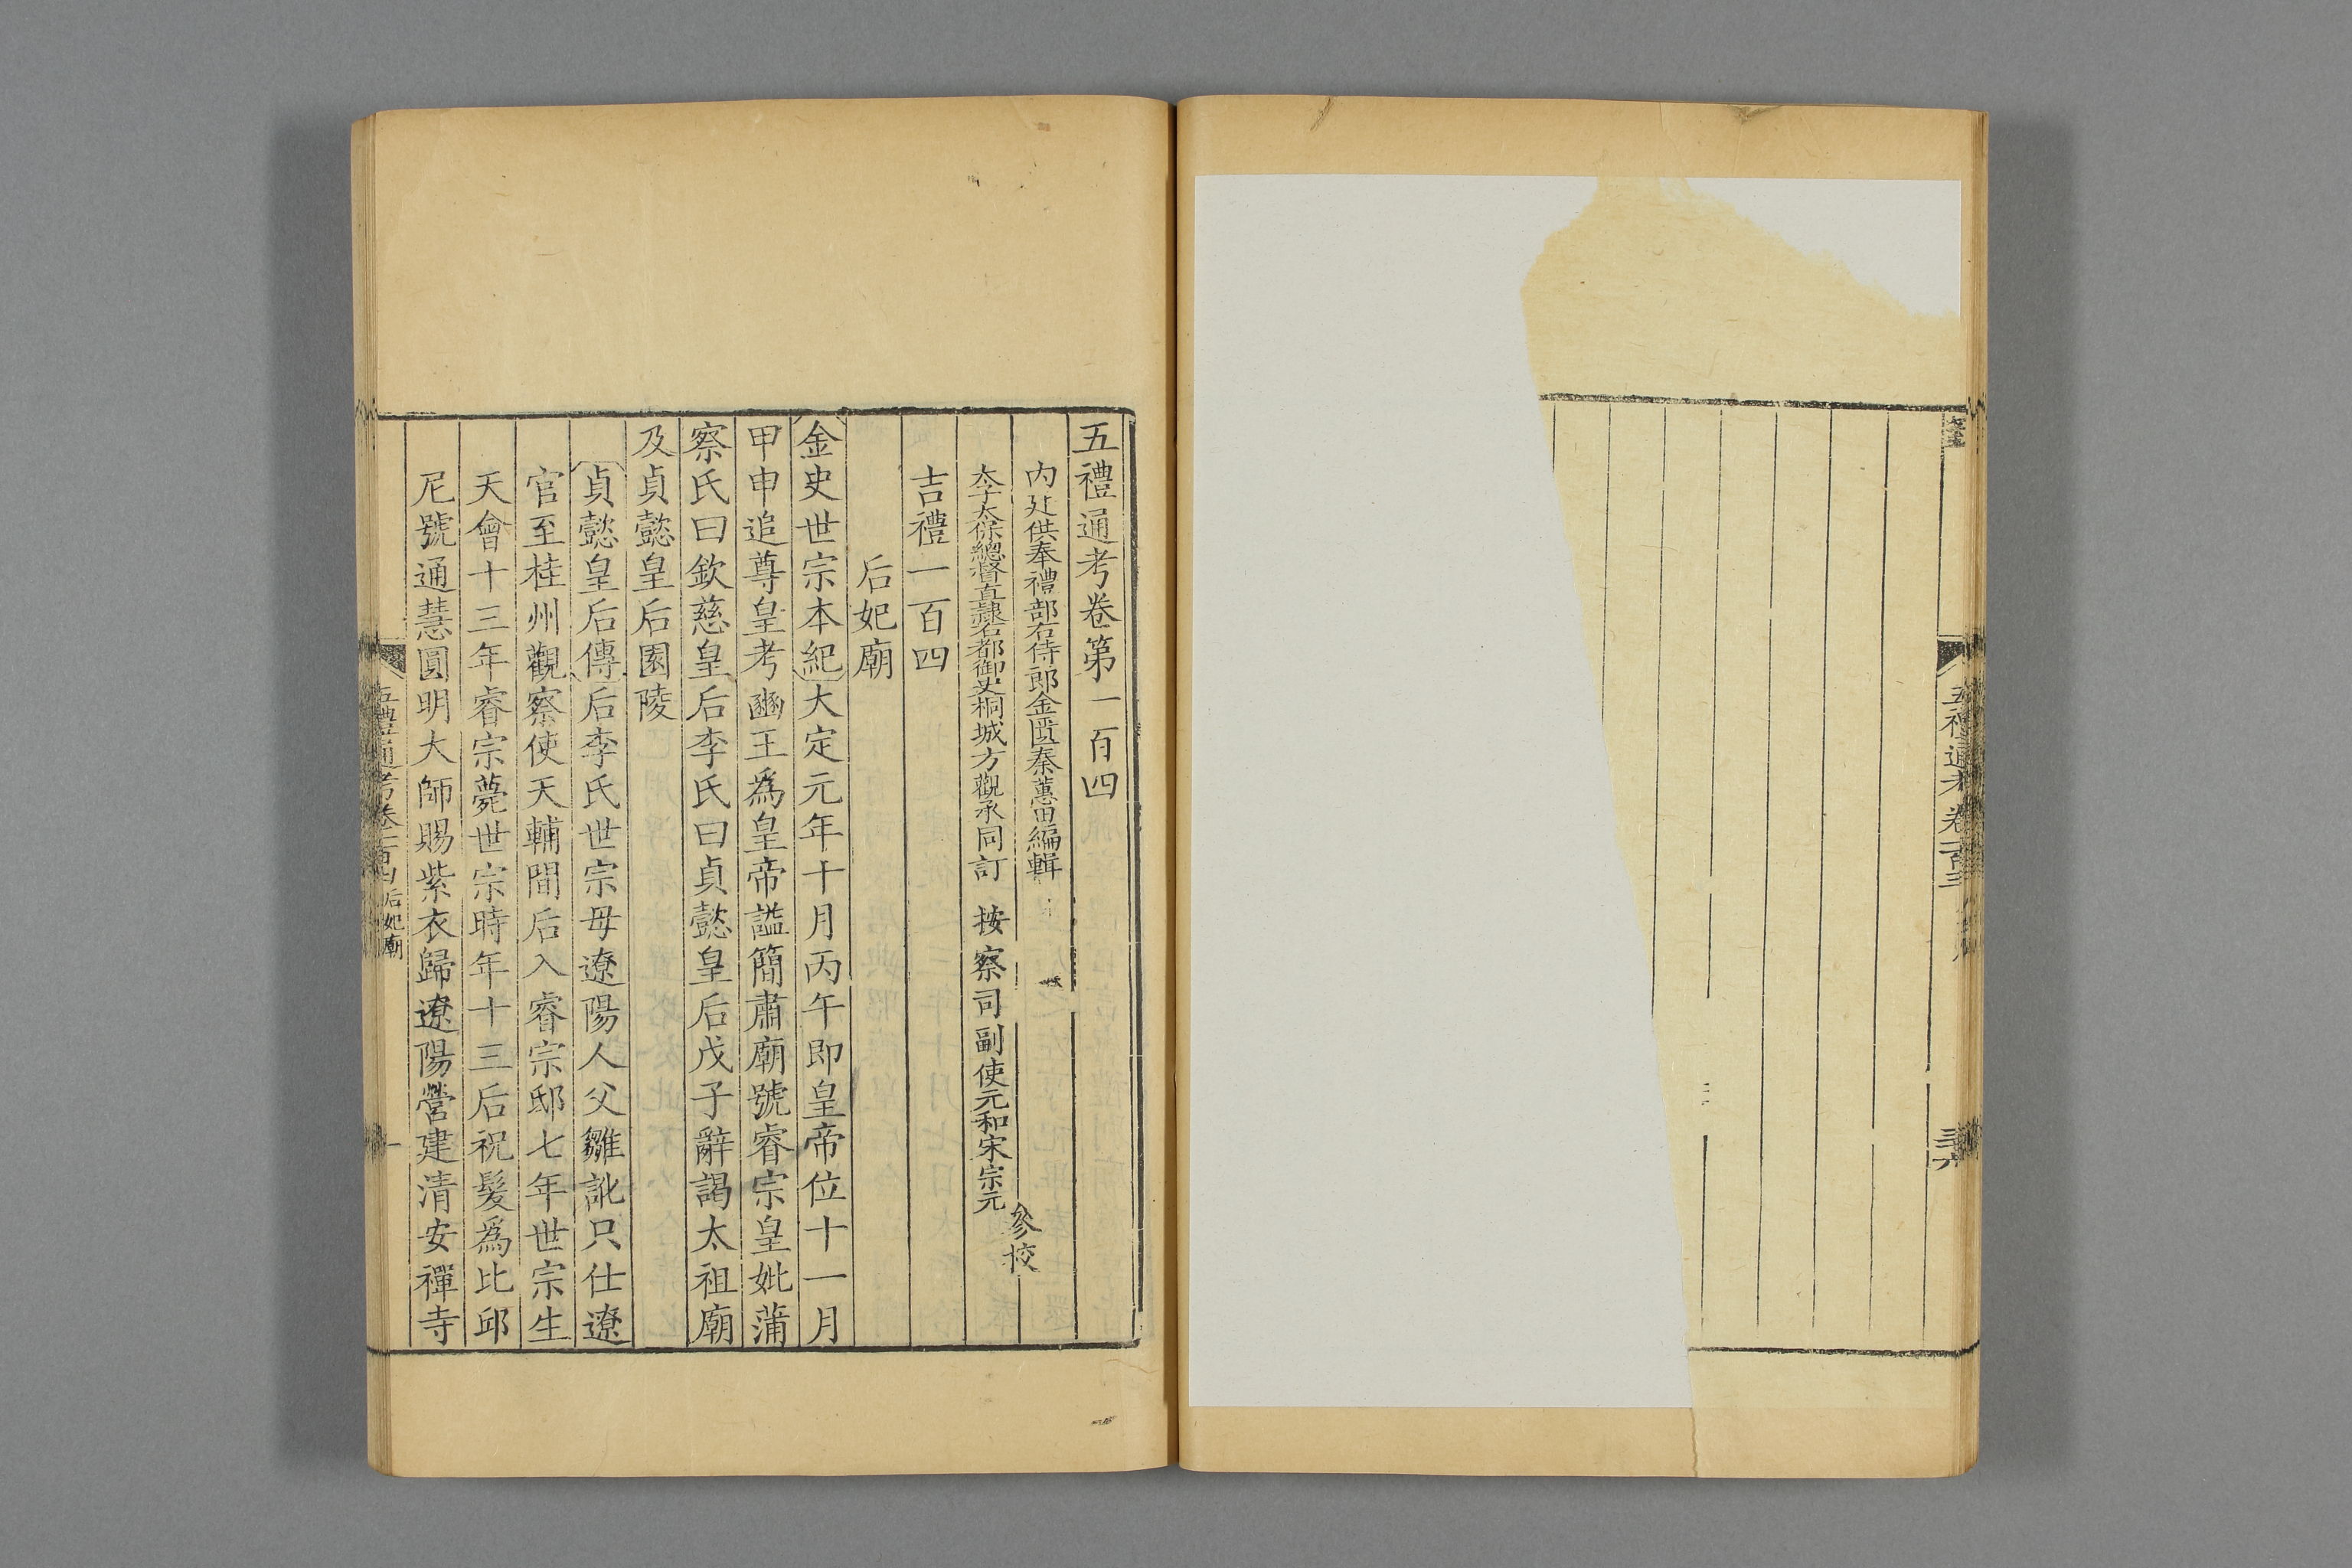 五禮通考卷一百三
三十六
五禮通考卷第一百四
內廷供奉禮部右侍郎金匱秦蕙田編輯
太子太保總督直隸右都御史桐城方觀承同訂 按察司副使元和宋宗元
參校
吉禮一百四
后妃廟
金史世宗本紀大定元年十月丙午即皇帝位十一月
甲申追尊皇考豳王為皇帝諡簡肅廟號睿宗皇妣蒲
察氏曰欽慈皇后李氏曰貞懿皇后戊子辭謁太祖廟
及貞懿皇后園陵
貞懿皇后傳后李氏世宗母遼陽人父雛訛只仕遼
官至桂州觀察使天輔間后入睿宗邸七年世宗生
天會十三年睿宗薨世宗時年十三后祝髮為比邱
尼號通慧圓明大師賜紫衣歸遼陽營建清安禪寺
五禮通考卷一百四 后妃廟
一